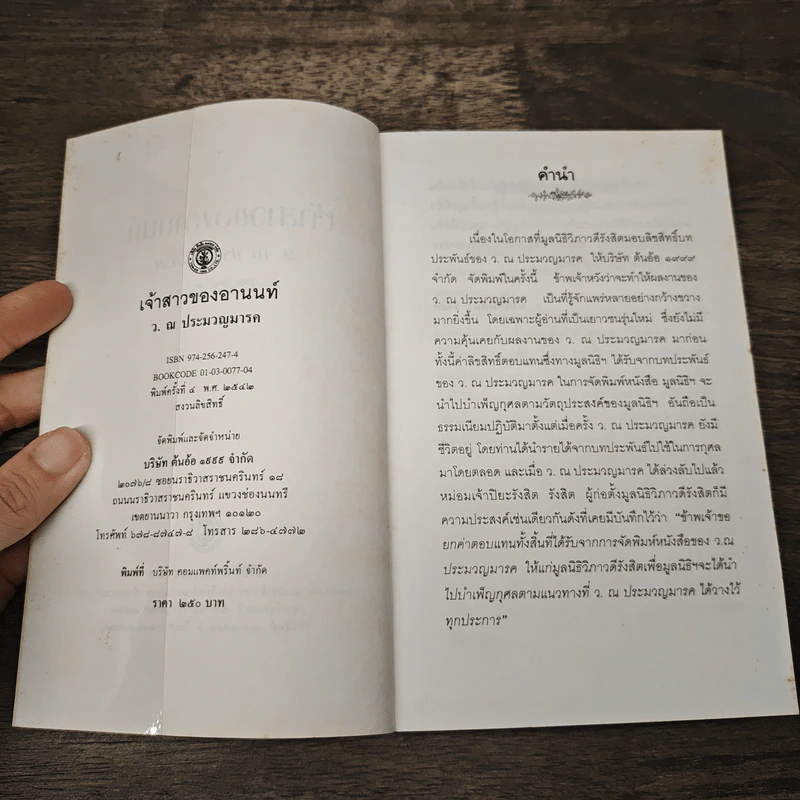 เจ้าสาวของอานนท์
ว. ณ ประมวญมารค
ISBN 974-256-247-4
BOOKCODE 01-03-0077-04
พิมพ์ครั้งที่ ๔ พ.ศ. ๒๕๔๒
สงวนลิขสิทธิ์
จัดพิมพ์และจัดจำหน่าย
บริษัท ต้นอ้อ ๑๙๙๙ จำกัด
๒๐๗๖/๘ ซอยนราธิวาสราชนครินทร์ ๑๘
ถนนนราธิวาสราชนครินทร์ แขวงช่องนนทรี
เขตยานนาวา กรุงเทพฯ ๑๐๑๒๐
โทรศัพท์ ๖๗๘-๘๗๔๗-๘ โทรสาร ๒๘๖-๔๗๗๒
พิมพ์ที่ บริษัท คอมแพคท์พริ้นท์ จำกัด
ราคา ๒๕๐ บาท
คำนำ
เนื่องในโอกาสที่มูลนิธิวิภาวดีรังสิตมอบลิขสิทธิ์บท
ประพันธ์ของ ว. ณ ประมวญมารค ให้บริษัท ต้นอ้อ ๑๙๙๙
จำกัด จัดพิมพ์ในครั้งนี้ ข้าพเจ้าหวังว่าจะทำให้ผลงานของ
ว. ณ ประมวญมารค เป็นที่รู้จักแพร่หลายอย่างกว้างขวาง
มากยิ่งขึ้น โดยเฉพาะผู้อ่านที่เป็นเยาวชนรุ่นใหม่ ซึ่งยังไม่มี
ความคุ้นเคยกับผลงานของ ว. ณ ประมวญมารค มาก่อน
ทั้งนี้ค่าลิขสิทธิ์ตอบแทนซึ่งทางมูลนิธิฯ ได้รับจากบทประพันธ์
ของ ว. ณ ประมวญมารค ในการจัดพิมพ์หนังสือ มูลนิธิฯ จะ
นำไปบำเพ็ญกุศลตามวัตถุประสงค์ของมูลนิธิฯ อันถือเป็น
ธรรมเนียมปฏิบัติมาตั้งแต่เมื่อครั้ง ว. ณ ประมวญมารค ยังมี
ชีวิตอยู่ โดยท่านได้นำรายได้จากบทประพันธ์ไปใช้ในการกุศล
มาโดยตลอด และเมื่อ ว. ณ ประมวญมารค ได้ล่วงลับไปแล้ว
หม่อมเจ้าปิยะรังสิต รังสิต ผู้ก่อตั้งมูลนิธิวิภาวดีรังสิตก็มี
ความประสงค์เช่นเดียวกันดังที่เคยมีบันทึกไว้ว่า “ข้าพเจ้าขอ
ยกค่าตอบแทนทั้งสิ้นที่ได้รับจากการจัดพิมพ์หนังสือของ ว.ณ
ประมวญมารค ให้แก่มูลนิธิวิภาวดีรังสิตเพื่อมูลนิธิฯจะได้นำ
ไปบำเพ็ญกุศลตามแนวทางที่ ว. ณ ประมวญมารค ได้วางไว้
ทุกประการ”